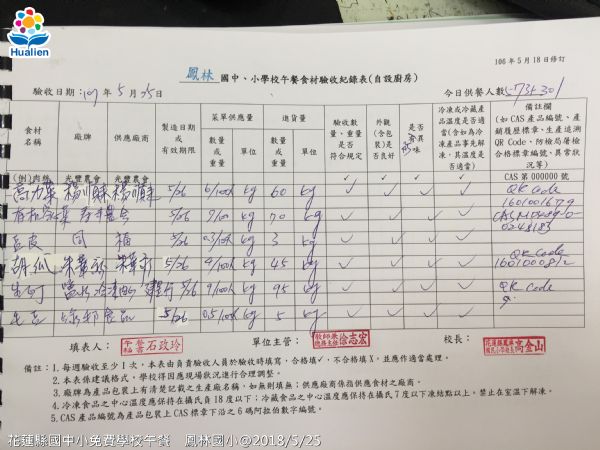 Hualien
106年5月18日修訂
鳳林 國中、小學校午餐食材驗收紀錄表(自設廚房)
驗收日期:107年5月25日 今日供餐人數:573+301
食材名稱 廠牌 供應廠商 製造日期或有效期限 菜單供應量 進貨量 驗收數量、重量是否符合規定 外觀(含包裝)是否良好 是否有異味 冷凍或冷藏產品溫度是否適當(含如為冷凍產品等先解凍,其溫度是否適當) 備註欄(如CAS產品編號、產銷履歷標章、生產追溯QR Code、防檢局屠檢合格標章編號、異常狀況等)
數量或重量 單位 數量或重量 單位
(例)肉絲 光豐農會 光豐農會 ✓ ✓ ✓ ✓ CAS第000000號
高力菜 楊順賕 楊順賕 5/26 6/100人 kg 60 kg ✓ ✓ ✓ QR code
1601001679
5/26 kg 70 kg ✓ ✓ ✓
024818
同 5/26 kg 3 kg ✓ ✓ ✓
胡瓜 5/26 kg 45 kg ✓ ✓ ✓ QR code
16010008
kg 95 kg ✓ ✓ ✓ QR code
食品 5/26 0.5/100人 kg 5 kg ✓ ✓ ✓
填表人: 午餐秘書石玫玲 單位主管: 教師兼總務主任徐志宏 校長: 花蓮縣鳳林國民小學校長高金山
備註:1.每週驗收至少1次,本表由負責驗收人員於驗收時填寫,合格填✓,不合格填X,並應作適當處理。
2.本表係建議格式,學校得因應現場狀況進行合理調整。
3.廠牌為產品包裝上有清楚記載之生產廠名稱,如無則填無;供應廠商係指供應食材之廠商。
4.冷凍食品之中心溫度應保持在攝氏負18度以下;冷藏食品之中心溫度應保持在攝氏7度以下凍結點以上,禁止在室溫下解凍。
5.CAS產品編號為產品包裝上CAS標章下沿之6碼阿拉伯數字編號。
花蓮縣國中小免費學校午餐 鳳林國小@2018/5/25